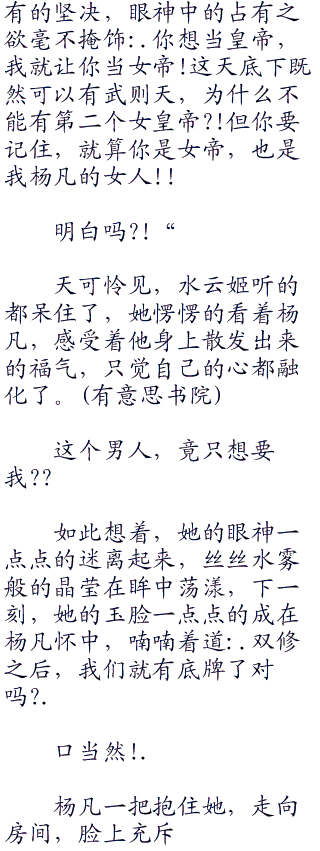 有的坚决，眼神中的占有之
欲毫不掩饰:.你想当皇帝，
我就让你当女帝!这天底下既
然可以有武则天，为什么不
能有第二个女皇帝?!但你要
记住，就算你是女帝，也是
我杨凡的女人!!
明白吗?!“
天可怜见，水云姬听的
都呆住了，她愣愣的看着杨
凡，感受着他身上散发出来
的福气，只觉自己的心都融
化了。(有意思书院)
这个男人，竟只想要
我??
如此想着，她的眼神一
点点的迷离起来，丝丝水雾
般的晶莹在眸中荡漾，下一
刻，她的玉脸一点点的成在
杨凡怀中，喃喃着道:.双修
之后，我们就有底牌了对
吗?.
口当然!.
杨凡一把抱住她，走向
房间，脸上充斥